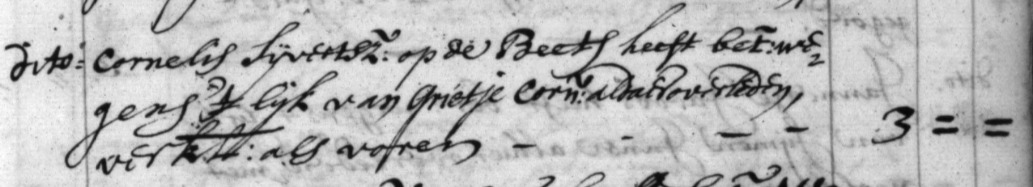 dito: Cornelis Sijvertsz: op de Beets heeft bet: we=
gens 't lijk van Grietje Corn: aldaer overleden,
verkl: als voren - - - - 3 = =